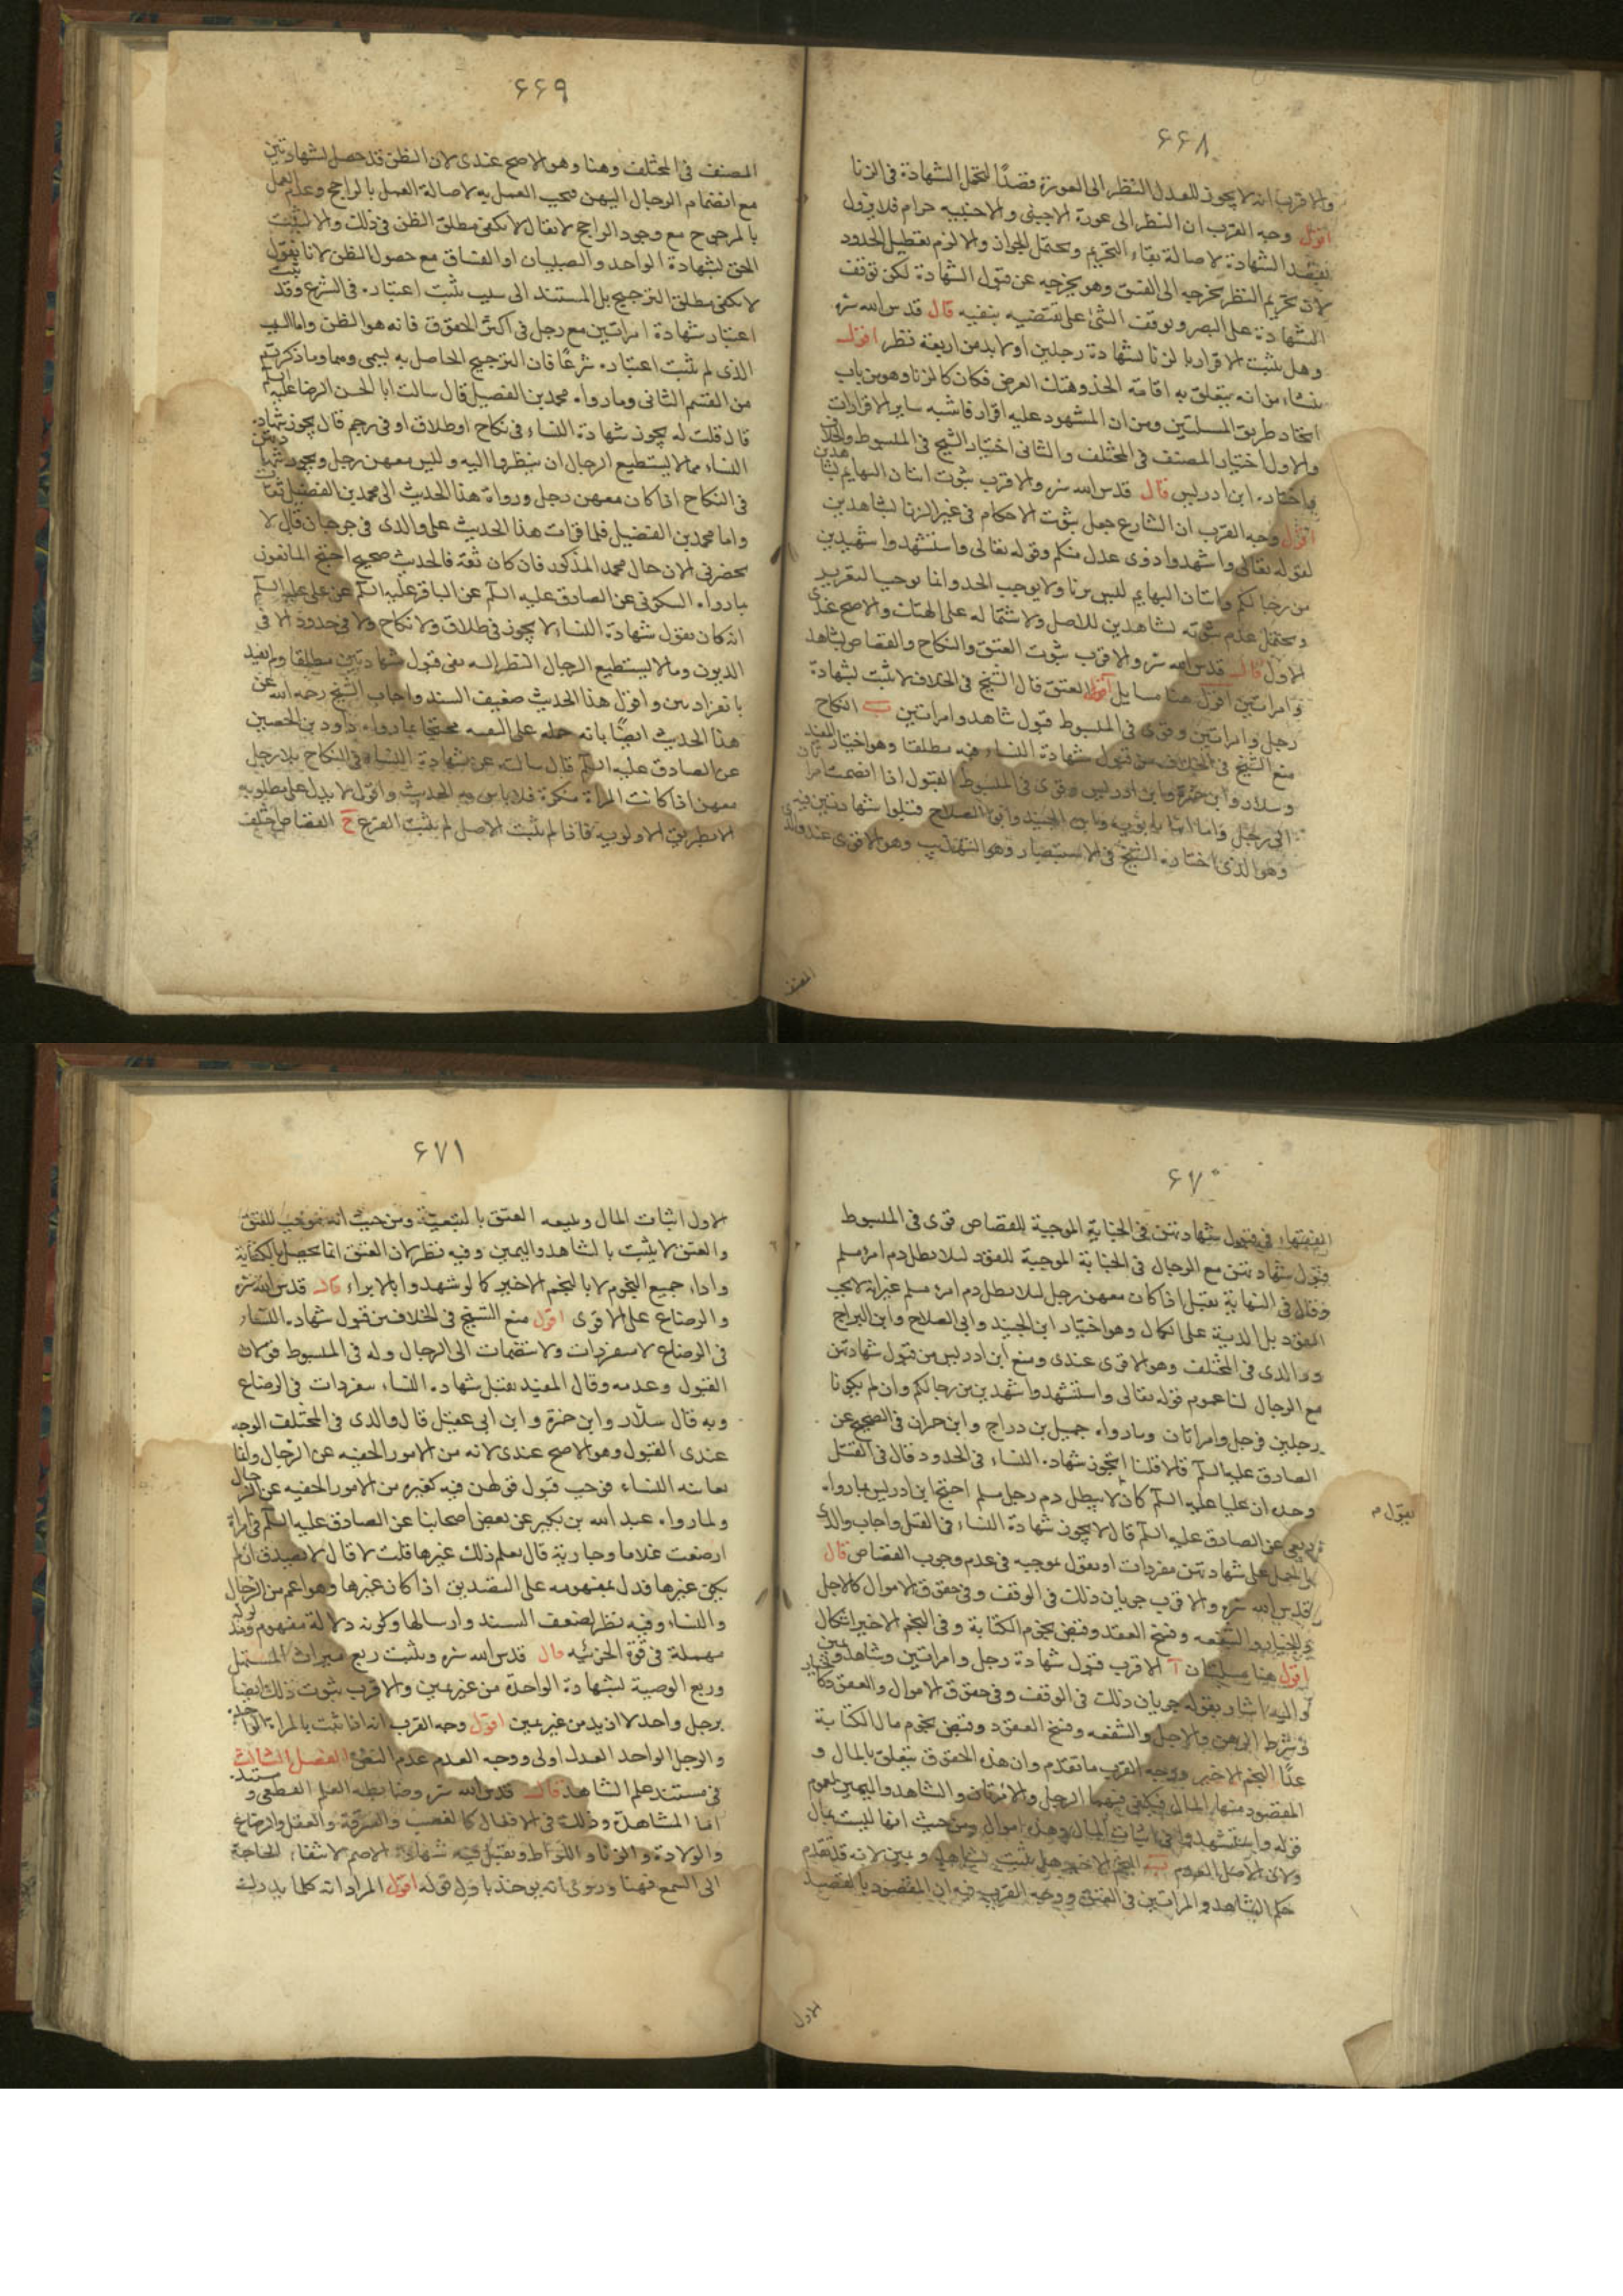 ۶۶۸
والاقرب انه لا يجوز للعدل النظر الى العورة قصدًا لتحمل الشهادة فى الزنا
اقول وجه القرب ان النظر الى عورة الاجنبى والاجنبيه حرام فلا يزول
بقصد الشهادة لاصالة بقاء التحريم ويحتمل الجواز والا لزم تعطيل الحدود
لان تحريم النظر يخرجه الى الفسق وهو يخرجه عن قبول الشهادة لكن توقف
الشهادة على البصر وتوقف الشئ على نقيضه ينفيه قال قدس الله سره
وهل يثبت الاقرار بالزنا بشهادة رجلين او لا بد من اربعة نظر اقول
ينشاء من انه يتعلق به اقامة الحد وهتك العرض فكان كالزنا وهو من باب
اتحاد طريق المسلتين ومن ان المشهود عليه اقرار فاشبه ساير الاقرارات
والاول اختيار المصنف فى المختلف والثانى اختيار الشيخ فى المبسوط والخلاف
واختاره ابن ادريس قال قدس الله سره والاقرب ثبوت اتيان البهايم بشاهدين
اقول وجه القرب ان الشارع جعل ثبوت الاحكام فى غير الزنا بشاهدين
لقوله تعالى واشهدوا ذوى عدل منكم وقوله تعالى واستشهدوا شهيدين
من رجالكم واتيان البهايم ليس بزنا ولا يوجب الحد وانما يوجب التعزير
ويحتمل عدم ثبوته بشاهدين للاصل ولاشتماله على الهتك والاصح عندى
الاول قال قدس الله سره والاقرب ثبوت العتق والنكاح والقصاص بشاهد
وامراتين اقول هنا مسايل آ العتق قال الشيخ فى الخلاف لا يثبت بشهادة
رجل وامراتين وقوى فى المبسوط قبول شاهد وامراتين ب النكاح
منع الشيخ فى الخلاف من قبول شهادة النساء فيه مطلقا وهو اختيار المفيد
وسلار وابن حمزة وابن ادريس وقوى فى المبسوط القبول اذا انضمت امراتان
الى رجل واما ابنا بابويه وابن الجنيد وابو الصلاح قبلوا شهادتهن فيه
وهو الذى اختاره الشيخ فى الاستبصار وهو التهذيب وهو الاقوى عند والدى
المصنف
۶۶۹
المصنف فى المختلف وهنا وهو الاصح عندى لان الظن قد حصل بشهادتهن
مع انضمام الرجال اليهن فيجب العمل به لاصالة العمل بالراجح وعدم العمل
بالمرجوح مع وجود الراجح لا يقال لا يكفى مطلق الظن فى ذلك والا لثبت
الحق بشهادة الواحد والصبيان او الفساق مع حصول الظن لانا نقول
لا يكفى مطلق الترجيح بل المستند الى سبب ثبت اعتباره فى الشرع وقد ثبت
اعتبار شهادة امراتين مع رجل فى اكثر الحقوق فانه هو الظن واما السبب
الذى لم يثبت اعتباره شرعًا فان الترجيح الحاصل به يسمى وهما وما ذكرتم
من القسم الثانى وما رواه محمد بن الفضيل قال سالت ابا الحسن الرضا عليه السلم
قال قلت له يجوز شهادة النساء فى نكاح او طلاق او فى رجم قال يجوز شهادة
النساء مما لا يستطيع الرجال ان ينظروا اليه وليس معهن رجل ويجوز شهادتهن
فى النكاح اذا كان معهن رجل ورواة هذا الحديث الى محمد بن الفضيل ثقات
واما محمد بن الفضيل فلما قرات هذا الحديث على والدى فى جرجان قال لا
يحضرنى الان حال محمد المذكور فان كان ثقة فالحديث صحيح احتج المانعون
بما رواه السكونى عن الصادق عليه السلم عن الباقر عليه السلم عن على عليه السلم
انه كان يقول شهادة النساء لا يجوز فى طلاق ولا نكاح ولا فى حدود الا فى
الديون وما لا يستطيع الرجال النظر اليه نفى قبول شهادتهن مطلقا ولم يقيد
بانفرادهن واقول هذا الحديث ضعيف السند واجاب الشيخ رحمه الله عن
هذا الحديث ايضًا بانه حمله على التقيه محتجا بما رواه داود بن الحصين
عن الصادق عليه السلم قال سالته عن شهادة النساء فى النكاح بلا رجل
معهن اذا كانت المراة منكرة فلا باس به الحديث واقول لا يدل على مطلوبه
الا بطريق الاولويه فاذا لم يثبت الاصل لم يثبت الفرع ج القصاص اختلف
۶۷۰
الفقهاء فى قبول شهادتهن فى الجناية الموجبة للقصاص قوى فى المبسوط
قبول شهادتهن مع الرجال فى الجناية الموجبة للقود لئلا يطل دم امرئ مسلم
وقال فى النهاية يقبل اذا كان معهن رجل لئلا يطل دم امرئ مسلم غير انه لا يجب
القود بل الدية على الكمال وهو اختيار ابن الجنيد وابى الصلاح وابن البراج
ووالدى فى المختلف وهو الاقوى عندى ومنع ابن ادريس من قبول شهادتهن
مع الرجال لنا عموم قوله تعالى واستشهدوا شهيدين من رجالكم وان لم يكونا
رجلين فرجل وامراتان وما رواه جميل بن دراج وابن حمران فى الصحيح عن
الصادق عليه السلم قالا قلنا اتجوز شهادة النساء فى الحدود قال فى القتل
وحده ان عليا عليه السلم كان لا يبطل دم رجل مسلم احتج ابن ادريس بما رواه
ربعى عن الصادق عليه السلم قال لا يجوز شهادة النساء فى القتل واجاب والدى
بالحمل على شهادتهن منفردات او يقول بموجبه فى عدم وجوب القصاص قال
نقول م
قدس الله سره والاقرب جريان ذلك فى الوقف وفى حقوق الاموال كالاجل
والخيار والشفعه وفسخ العقد وقبض نجوم الكتابة وفى النجم الاخير اشكال
اقول هنا مسلتان آ الاقرب قبول شهادة رجل وامراتين وشاهد ويمين
واليه اشار بقوله جريان ذلك فى الوقف وفى حقوق الاموال والعقود كالخيار
وشرط الرهن والاجل والشفعه وفسخ العقود وقبض نجوم مال الكتابة
عدا النجم الاخير ووجه القرب ما تقدم وان هذه الحقوق يتعلق بالمال و
المقصود منها المال فيكفى فيها الرجل والامراتان والشاهد واليمين لعموم
قوله واستشهدوا فى اثبات المال وهل اموال ومن حيث انها ليست بمال
ولان الاصل العدم ب النجم الاخير هل يثبت بشاهد ويمين لانه قد تقدم
حكم الشاهد والمراتين فى العتق ووجه القرب فيه ان المقصود بالقصد
الاول
۶۷۱
الاول اثبات المال وتبعه العتق بالتبعية ومن حيث انه موجب للعتق
والعتق لا يثبت بالشاهد واليمين وفيه نظر لان العتق انما يحصل بالكتابة
واداء جميع النجوم لا بالنجم الاخير كما لو شهدوا بالابراء قال قدس الله سره
والرضاع على الاقوى اقول منع الشيخ فى الخلاف من قبول شهادة النساء
فى الرضاع لا منفردات ولا منضمات الى الرجال وله فى المبسوط قولان
القبول وعدمه وقال المفيد يقبل شهادة النساء منفردات فى الرضاع
وبه قال سلار وابن حمزة وابن ابى عقيل قال والدى فى المختلف الوجه
عندى القبول وهو الاصح عندى لانه من الامور الخفيه عن الرجال وانما
يعاينه النساء فوجب قبول قولهن فيه كغيره من الامور الخفيه عن الرجال
ولما رواه عبد الله بن بكير عن بعض اصحابنا عن الصادق عليه السلم فى امراة
ارضعت غلاما وجارية قال يعلم ذلك غيرها قلت لا قال لا تصدق ان لم
يكن غيرها فدل بمفهومه على التصديق اذا كان غيرها وهو اعم من الرجال
والنساء وفيه نظر لضعف السند وارسالها وكونه دلالة مفهوم وقوله
مهملة فى قوة الجزئيه قال قدس الله سره ويثبت ربع ميراث المستهل
وربع الوصية بشهادة الواحدة من غير يمين والاقرب ثبوت ذلك ايضا
برجل واحد لا ازيد من غير يمين اقول وجه القرب انه اذا ثبت بالمراة الواحدة
والرجل الواحد العدل اولى ووجه العدم عدم النص الفصل الثالث
فى مستند علم الشاهد قال قدس الله سره وضابطه العلم القطعى و مستنده
اما المشاهدة وذلك فى الافعال كالغصب والسرقة والقتل والرضاع
والولادة والزنا واللواط ويقبل فيه شهادة الاصم لانتفاء الحاجة
الى السمع فيها وروى انه يوخذ باول قوله اقول المراد انه كلما يدرك